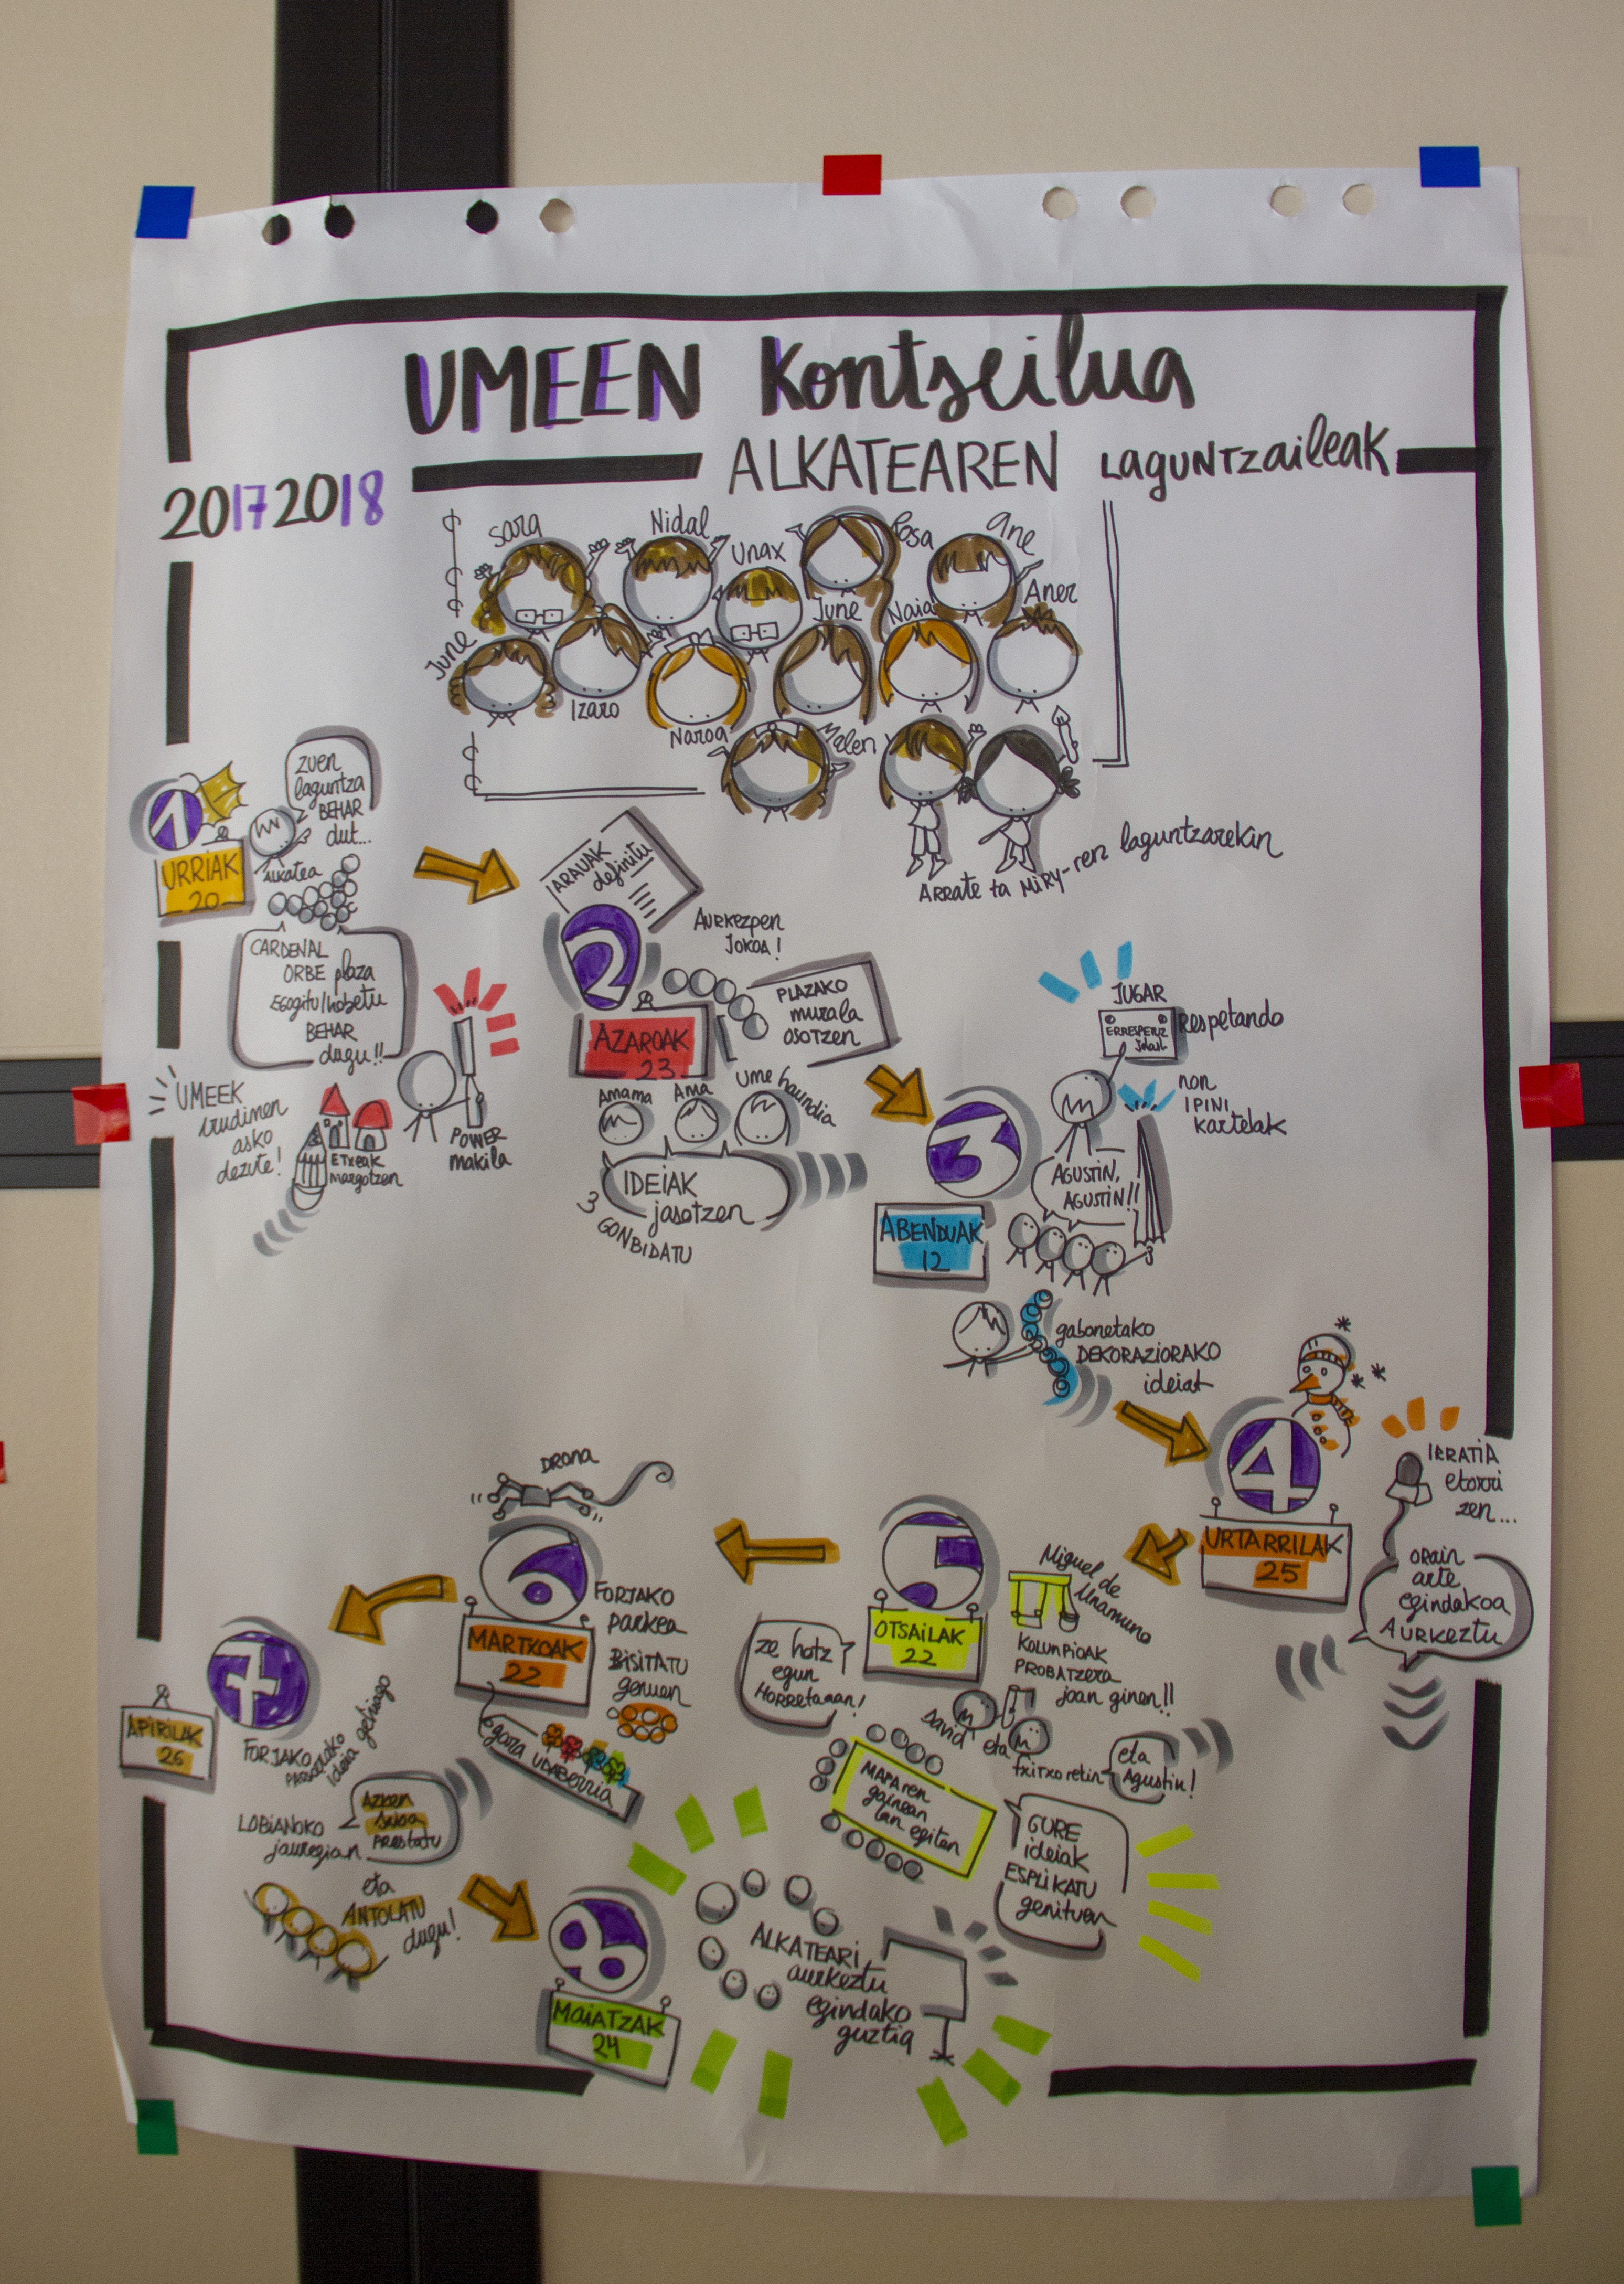 UMEEN Kontseilua
ALKATEAREN LAGUNTZAILEAK
20172018
Sara
Nidal
Unax
Rosa
Ane
June
Izaro
Naroa
June
Naia
Aner
Malen
ARRATE ta MIRY-ren laguntzarekin
1
URRIAK
20
zuen
laguntza
BEHAR
dut...
ALKATEA
CARDENAL
ORBE plaza
EGOGITU/hobetu
BEHAR
dugu!!
UMEEK
irudimen
asko
dezute!
ETXEAK
margotzen
POWER
makila
ARAUAK
definitu
2
AZAROAK
23
AURKEZPEN
JOKOA!
PLAZAKO
murala
OSOTZEN
Amama
Ama
Ume haundia
IDEIAK
jasotzen
3 GONBIDATU
3
ABENDUAK
12
JUGAR
Respetando
ERRESPETUZ
Jolastu
non
IPINI
kartelak
AGUSTIN,
AGUSTIN!!
gabonetako
DEKORAZIORAKO
ideiak
4
URTARRILAK
25
IRRATIA
etorri
zen...
ORAIN
arte
egindakoa
AURKEZTU
5
OTSAILAK
22
Miguel de
Unamuno
KOLUNPIOAK
PROBATZERA
joan ginen!!
ze hotz
egun
HORRETAAAN!
David eta
txitxoretin
eta
Agustin!
MAPAREN
gainean
lan egiten
GURE
ideiak
ESPLIKATU
genituen
DRONA
6
MARTXOAK
22
FORJAKO
parkea
BISITATU
genuen
egora UDABERRIA
7
APIRILAK
26
FORJAKO
PARKERAKO
ideia gehiago
LOBIANOKO
jauregian
AZKEN
PRESTATU
eta
ANTOLATU
dugu!
8
MAIATZAK
24
ALKATEARI
aurkeztu
egindako
guztia